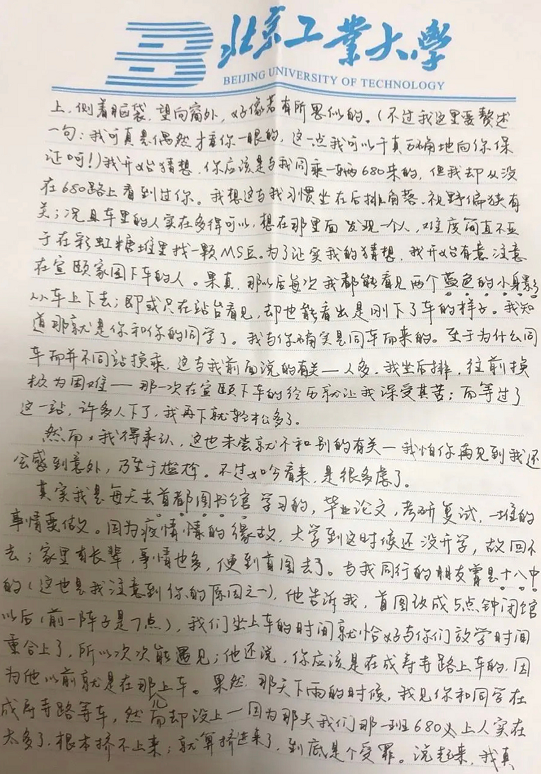 北京工业大学
BEIJING UNIVERSITY OF TECHNOLOGY
上,侧着脑袋,望向窗外,好像若有所思似的。(不过我这里要赘述
一句:我可真是偶然才看你一眼的,这一点我可以千真万确地向你保
证呵!)我开始猜想,你应该是与我同乘一辆680来的,但我却从没
在680路上看到过你。我想这与我习惯坐在后排角落,视野偏狭有
关;况且车里的人实在多得可以,想在那里面发现一个人,难度简直不亚
于在彩虹糖堆里找一颗MS豆。为了证实我的猜想,我开始有意注意
在宣颐家园下车的人。果真,那以后每次我都能看见两个蓝色的小身影
从车上下去;即或只在站台看见,却也能看出是刚下了车的样子。我知
道那就是你和你的同学了。我与你确实是同车而来的。至于为什么同
车而并不同站换乘,这与我前面说的有关——人多,我坐后排,往前挨
较为困难——那一次在宣颐下车的经历就让我深受其苦;而等过了
这一站,许多人下了,我再下就轻松多了。
然而,我得承认,这也未尝就不和别的有关——我怕你再见到我还
会感到意外,乃至于尴尬。不过如今看来,是很多虑了。
其实我是每天去首都图书馆学习的,毕业论文,考研复试,一堆的
事情要做。因为疫情的缘故,大学到这时候还没开学,故回不
去;家里有长辈,事情也多,便到首图去了。与我同行的朋友曾是十八中
的(这也是我注意到你的原因之一),他告诉我,首图改成5点钟闭馆
以后(前一阵子是7点),我们坐上车的时间就恰好与你们放学时间
重合上了,所以次次能遇见;他还说,你应该是在成寿寺路上车的,因
为他以前就是在那上车。果然,那天下雨的时候,我见你和同学在
成寿寺路等车,然而却没上——因为那天我们那一班680上人实在
太多了,根本挤不上来,就算挤进来了,到底是个受罪。说起来,我真